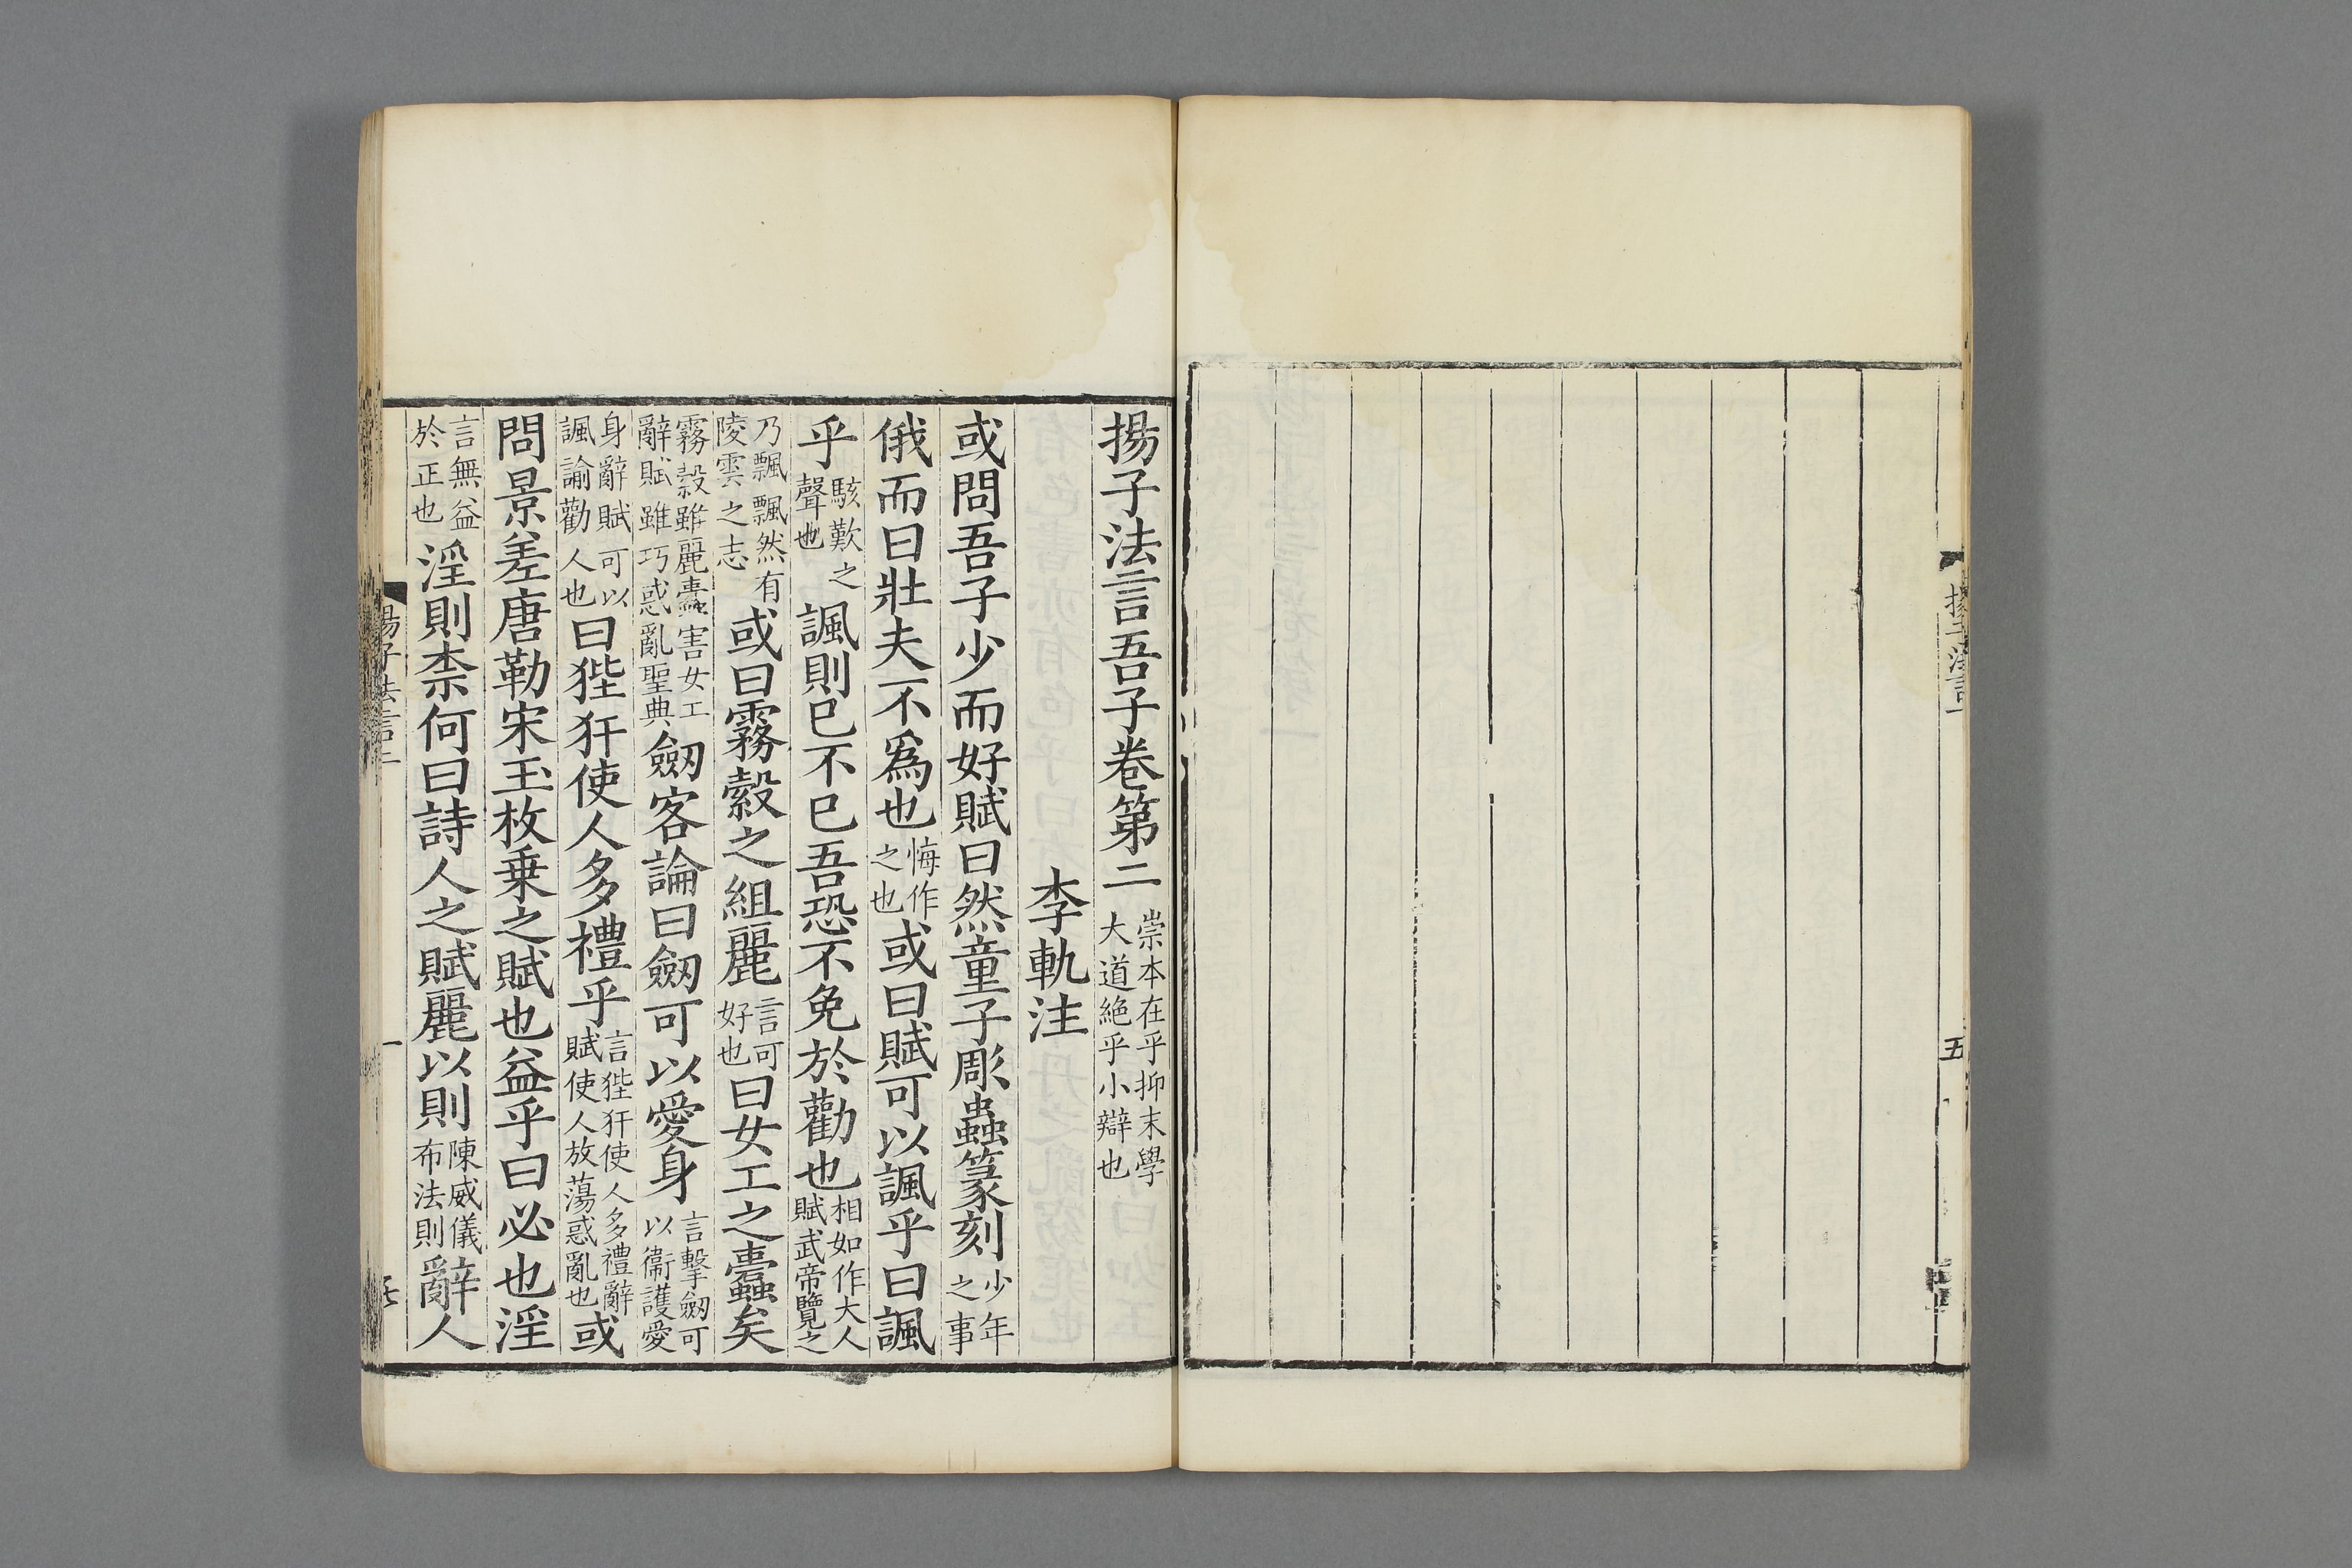 揚子法言一
五
揚子法言吾子卷第二崇本在乎抑末學大道絶乎小辯也
李軌注
或問吾子少而好賦曰然童子彫蟲篆刻少年之事
俄而曰壯夫不爲也悔作之也或曰賦可以諷乎曰諷
乎駭歎之聲也諷則已不已吾恐不免於勸也相如作大人賦武帝覽之
乃飄飄然有陵雲之志或曰霧縠之組麗言可好也曰女工之蠹矣
霧縠雖麗蠹害女工辭賦雖巧惑亂聖典劒客論曰劒可以愛身言擊劒可以衞護愛
身辭賦可以諷諭勸人也曰狴犴使人多禮乎言狴犴使人多禮辭賦使人放蕩惑亂也或
問景差唐勒宋玉枚乗之賦也益乎曰必也淫
言無益於正也淫則柰何曰詩人之賦麗以則陳威儀布法則辭人
揚子法言二
一